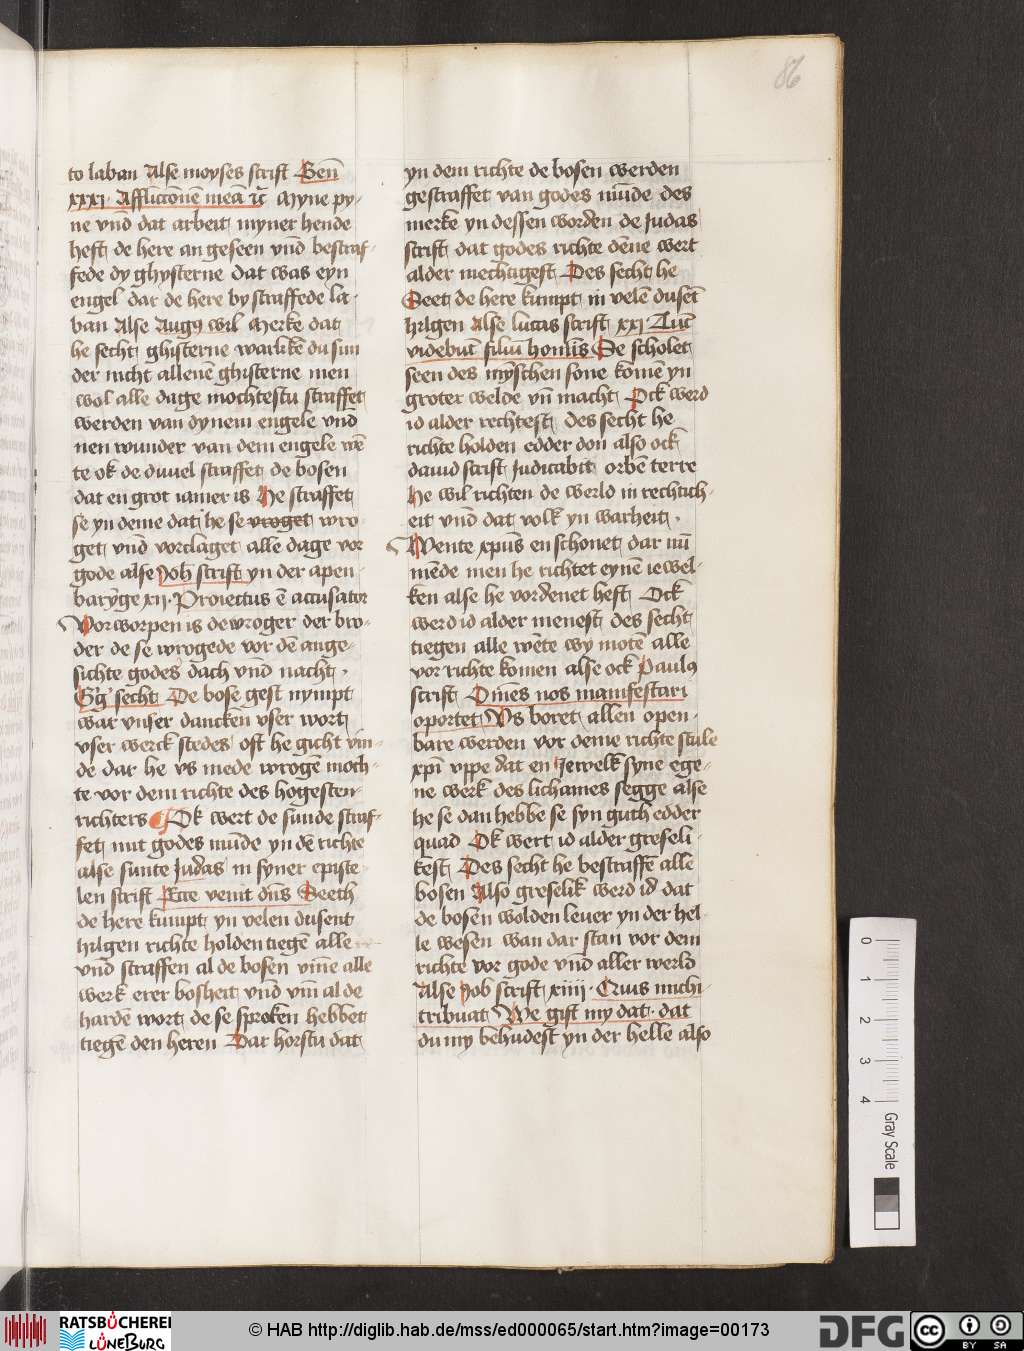 86
to laban Alse moyses scrift Gen̄
xxxi· Afflictionē meā ⁊c̄ Myne py-
ne vnd̄ dat arbeit myner hende
heft de here an geseen vnd̄ bestraf-
fede dy ghysterne dat was eyn
engel dar de here by straffede la-
ban Alse Augꝯ wil Merke dat
he secht ghisterne warlikē du sun
der nicht allenē ghisterne men
wol alle dage mochtestu straffet
werden van dynem engele vnd̄
nen wunder van dem engele wē
te ok de duuel straffet de bosen
dat en grot iamer is He straffet
se yn deme dat he se vroget wro
get vnd̄ vorclaget alle dage vor
gode alse Joh̄ scrift yn der apen-
barȳge xij· Proiectus ē accusator
Vorworpen is de wroger der bro-
der de se wrogede vor dē ange-
sichte godes dach vnd̄ nacht·
G͛g͛ secht De bose gest nympt
war vnser dancken vser wort
vser werck stedes oft he gicht vin-
de dar he vs mede wrogē moch-
te vor dem richte des hogesten
richters Ok wert de sunde straf-
fet mit godes mūde yn dē richte
alse sunte Judas in syner episte-
len scrift Ecce venit dn̄s Seeth
de here kumpt yn velen dusent
hilgen richte holden tiegē alle
vnd̄ straffen al de bosen vm̄e alle
werk erer bosheit vnd̄ vm̄ al de
hardē wort de se sproken hebbet
tiegē den heren Dar horstu dat
yn dem richte de bosen werden
gestraffet van godes mūde des
merke yn dessen worden de Judas
scrift dat godes richte dēne wert
alder mechtigest Des secht he
Seet de here kumpt in velē dusēt
hilgen Alse lucas scrift xxi· Tūc
videbūt filiū homīs De scholet
seen des mȳschen sone komē yn
groter welde vn̄ macht Ock werd
id alder rechtest des secht he
richte holden edder don also ock
dauid scrift Judicabit orbē terre
He wil richten de werld in rechtich-
eit vnd̄ dat volk yn warheit·
Wente xpūs en schonet dar nū
mēde men he richtet eynē iewel-
ken alse he vordenet heft Ock
werd id alder menest des secht
tiegen alle wēte wy motē alle
vor richte komen alse ock Paulꝯ
scrift Om̄es nos manifestari
oportet Vs boret allen open-
bare werden vor deme richte stule
xpī vppe dat en Jewelk syne ege-
ne werk des lichames segge alse
he se dan hebbe se syn guth edder
quad Ok wert id alder greseli-
kest Des secht he bestraffē alle
bosen Also greselik werd id dat
de bosen wolden leuer yn der hel-
le wesen wan dar stan vor dem
richte vor gode vnd̄ aller werld
Alse Job scrift xiiii· Quis michi
tribuat We gift my dat· dat
du my behudest yn der helle also
0 1 2 3 4
Gray Scale
RATSBÜCHEREI
LÜNEBURG
© HAB http://diglib.hab.de/mss/ed000065/start.htm?image=00173
DFG
cc BY SA